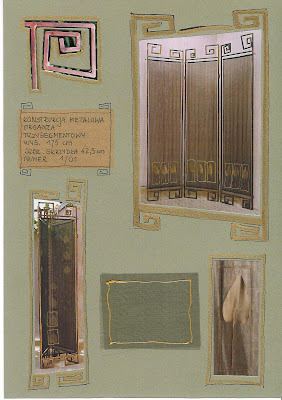 KONSTRUKCJA METALOWA
ORGANZA
TRZYSEGMENTOWY
WYS. 175 cm
SZER. SKRZYDŁA 42,5 cm
NUMER 1/01